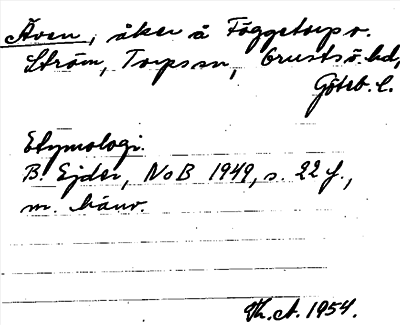 Även, åker å Föggetorp v.
Ström, Torps sn, Orusts v. hd,
Göteb. l.
Etymologi.
B. Ejder, NoB 1949, s. 22 f.,
m. hänv.
Th. A. 1954.